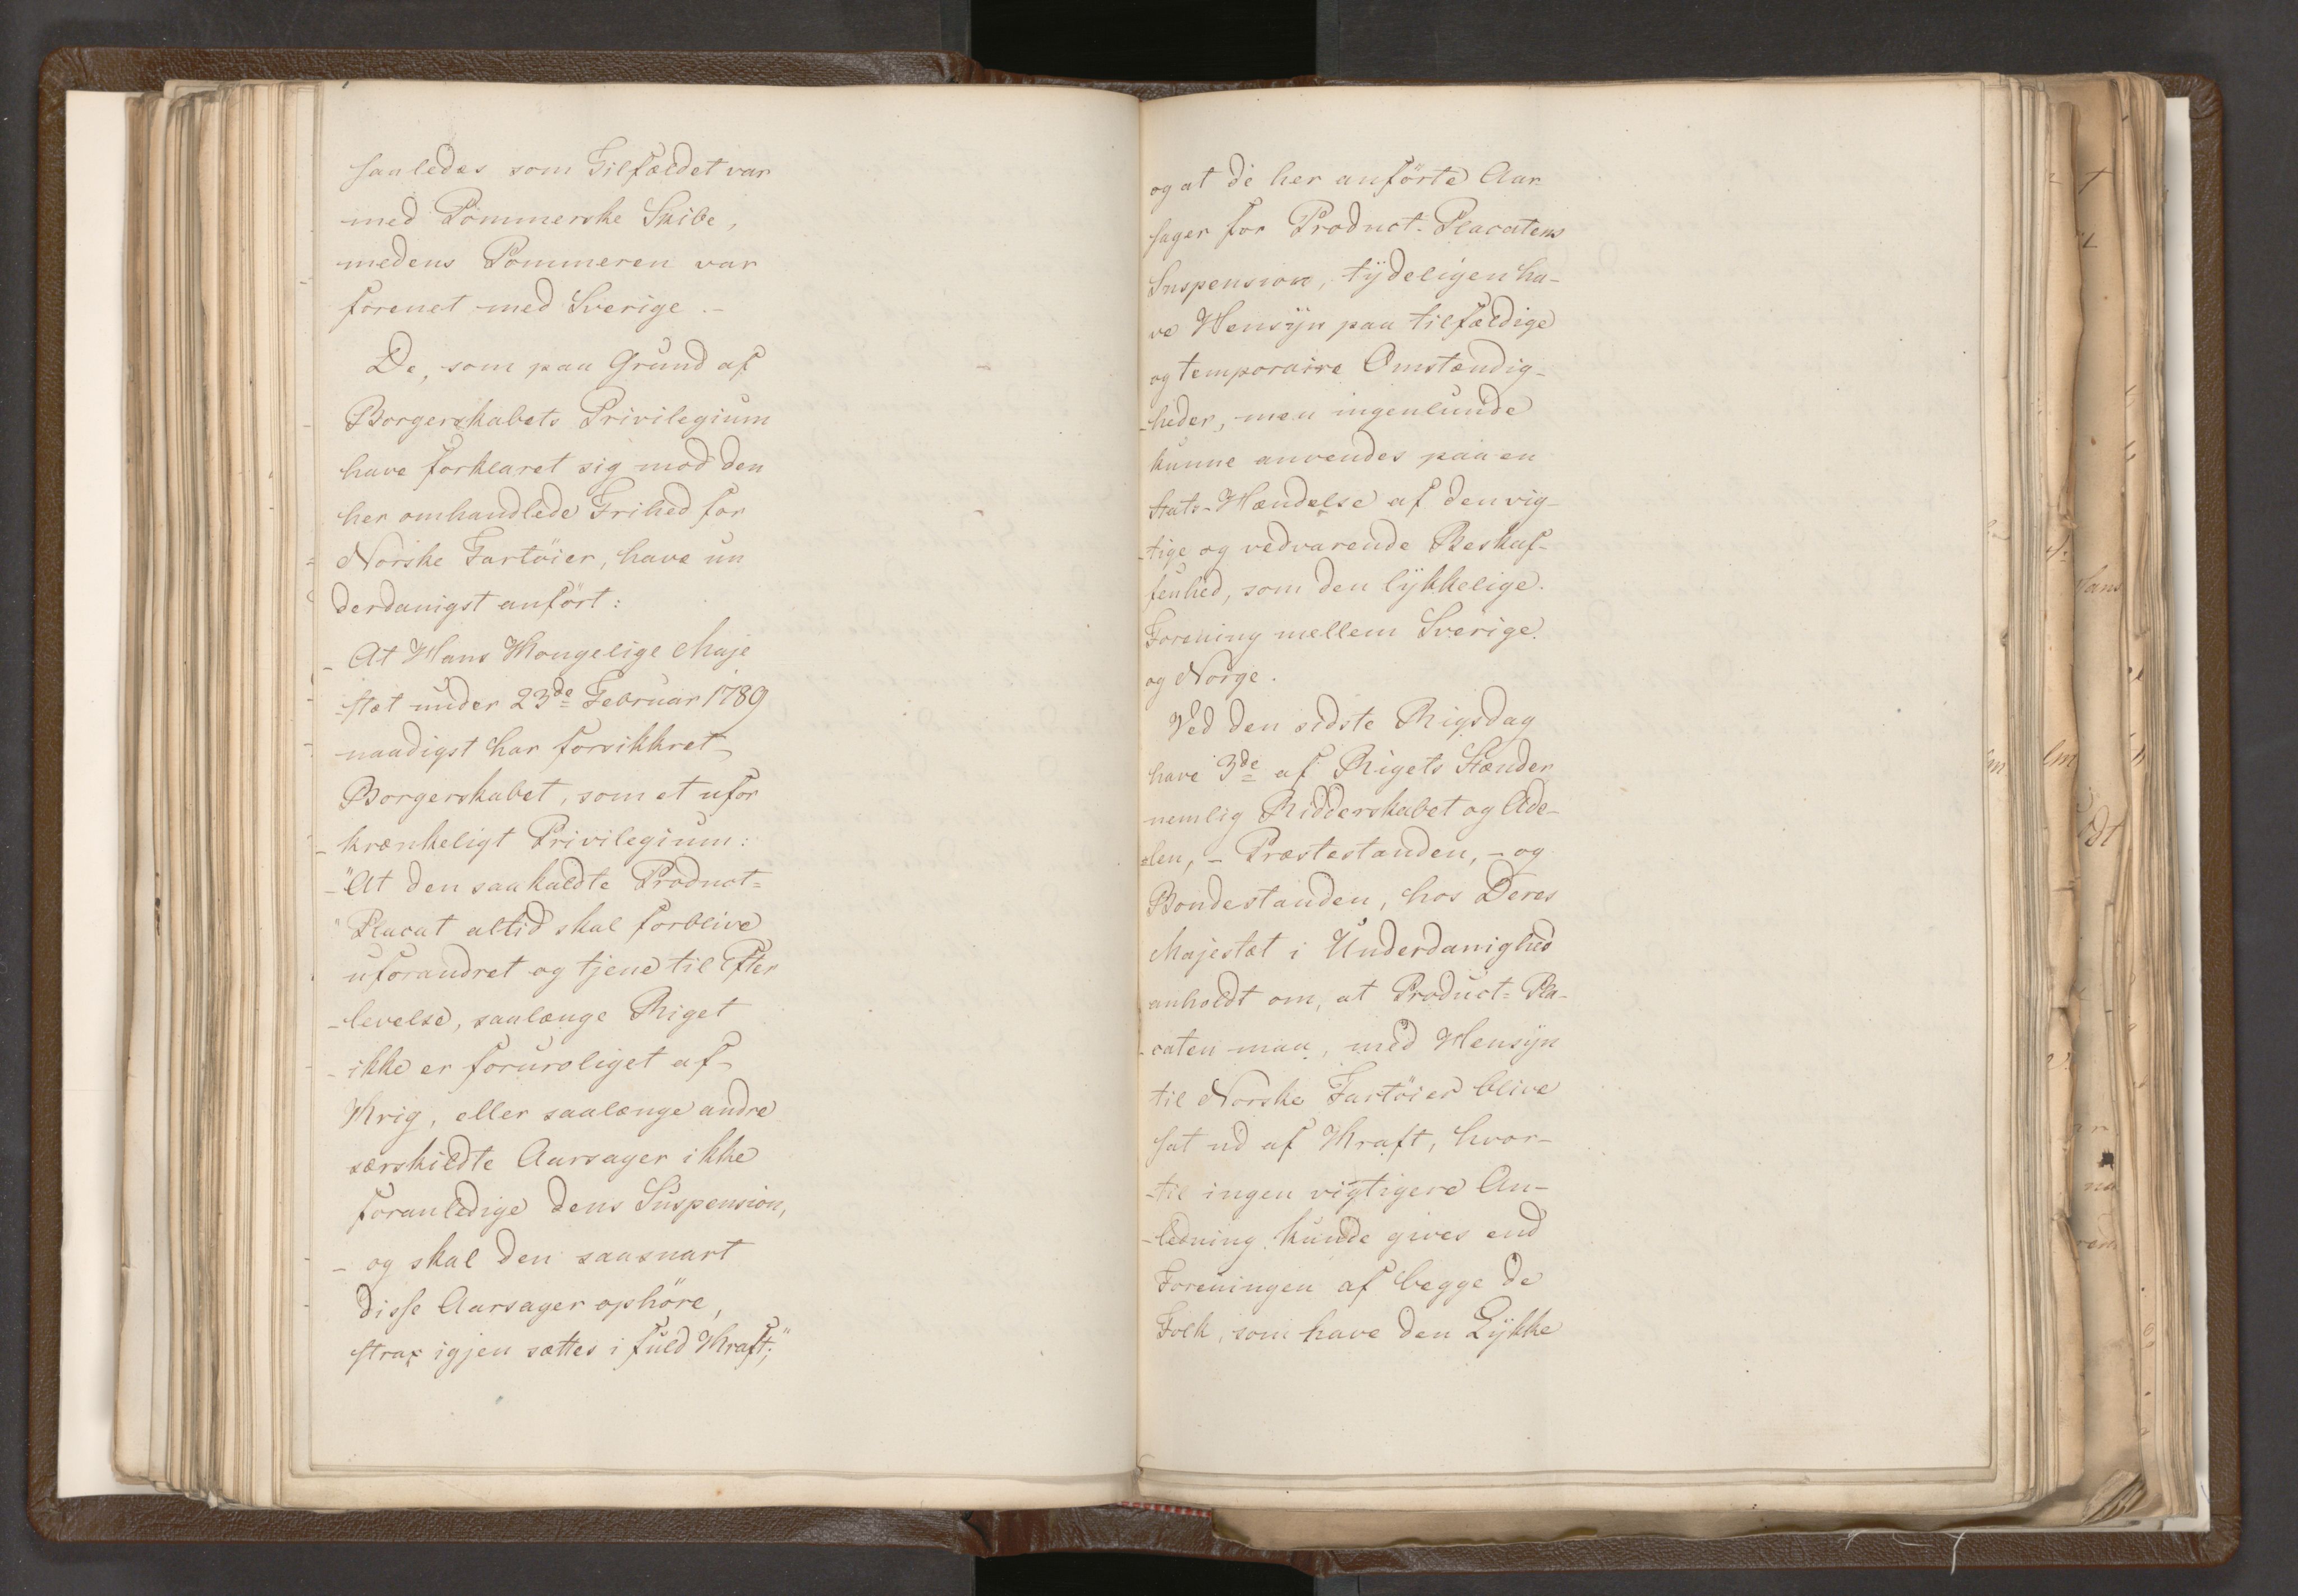 saaledes som Tilfældet var
med Pommerske Skibe,
medens Pommeren var
forenet med Sverige.-
De, som paa Grund af
Borgerskabets Privilegium
have forklaret sig mod den
her omhandlede Frihed for
Norske Fartöier, have un
derdanigst anfört:
_ At Hans Kongelige Maje
-stæt under 23de Februar 1789
naadigst har forsikkret
Borgerskabet, som et ufor
-krænkeligt Privilegium:
-"At den saakaldte Product=
"Placat altid skal forblive
uforandret og tjene til Efter
-levelse, saalænge Riget
-ikke er foruroliget af
Krig, eller saalænge andre
særskildte Aarsager ikke
foranledige dens Suspension,
- og skal den saasnart
disse Aarsager ophöre,
strax igjen sættes i fuld Kraft;"
og at de her anförte Aar
sager for Product-Placatens
Suspension, tÿdeligen ha-
ve Hensÿn paa tilfældige
og temporaire Omstændig-
-heder, men ingenlunde
kunne anvendes paa en
Stats-Hændelse af den vig-
-tige og vedvarende Beskaf-
fenhed, som den lÿkkelige
Forening mellem Sverige
og Norge.
Ved den sidste Rigsdag
have 3de af Rigets Stænder
nemlig Ridderskabet og Ade-
-len, - Præstestanden, - og
Bondestanden, hos Deres
Majestæt i Underdanighed
anholdt om, at Product=Pla-
-caten maa, med Hensÿn
til Norske Fartöier blive
sat ud af Kraft, hvor-
-til ingen vigtigere An-
-ledning kunde gives end
Foreningen af begge de
Folk, som have den Lÿkke